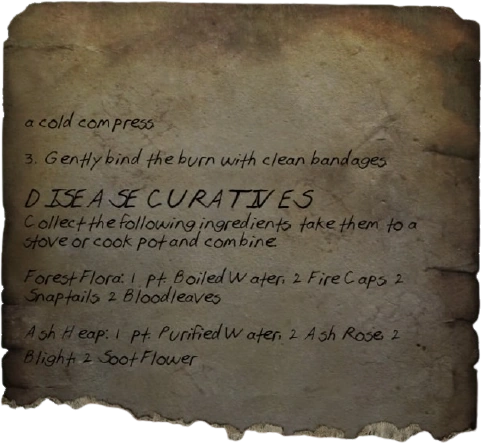 a cold compress
3. Gently bind the burn with clean bandages
DISEASE CURATIVES
Collect the following ingredients, take them to a
stove or cook pot and combine.
Forest Flora: 1 pt. Boiled Water, 2 Fire Caps, 2
Snaptails, 2 Bloodleaves
Ash Heap: 1 pt. Purified Water, 2 Ash Rose, 2
Blight, 2 Soot Flower